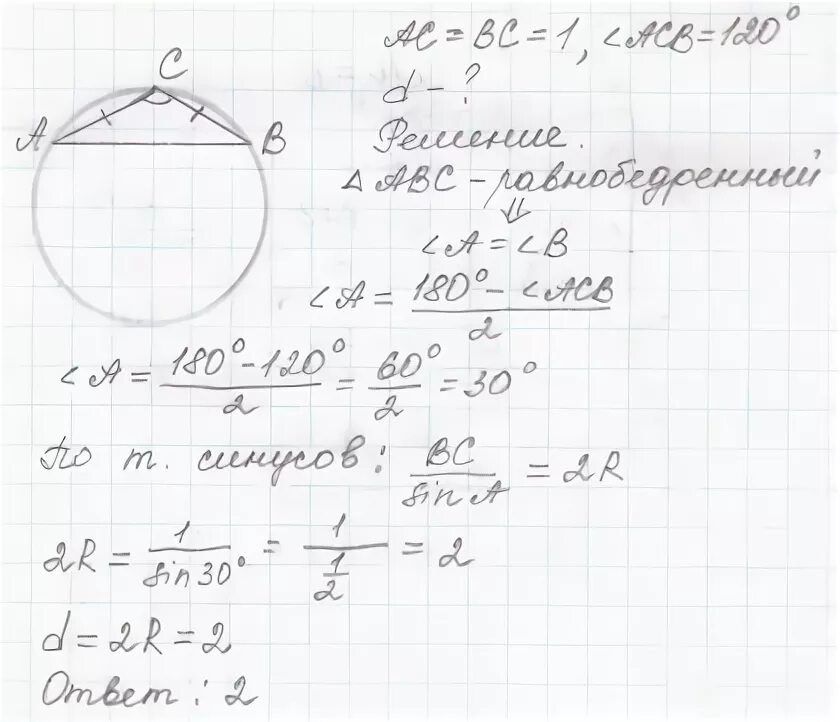 C
A
B
AC = BC = 1, ∠ACB = 120°
d - ?
Решение.
△ ABC - равнобедренный
⇓
∠A = ∠B
∠A = (180° - ∠ACB)/2
∠A = (180° - 120°)/2 = 60°/2 = 30°
По т. синусов: BC/sin A = 2R
2R = 1/sin 30° = 1/(1/2) = 2
d = 2R = 2
Ответ: 2